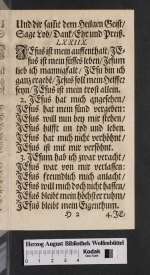 Und die sampt dem Heiligen Geist/
Sage Lob/ Danck/ Ehr und Preiß.
LXXIIX.
JEsus ist mein auffenthalt/ JE-
sus ist mein süsses leben/ Jesum
lieb ich mannigfalt/ JEsu bin ich
gantz ergebe/ Jesus soll mein Helffer
seyn/ JEsus ist mein trost allein.
2. JEsus hat mich angesehen/
JEsus hat mein sünd vergeben:
JEsus will bey mir stehen/
JEsus hilfft un tod und leben.
JEsus hat mich nicht verhönt/
JEsus ist mit mir versöhnt.
3. JEsum hab ich zwar veracht/
JEsus war von mir verlassen:
JEsus freundlich mich anlacht/
JEsus will mich doch nicht hassen/
JEsus bleibt mein höchster ruhm/
JEsus bleibt mein Eigenthum.
4. JE-
Herzog August Bibliothek Wolfenbüttel
Kodak